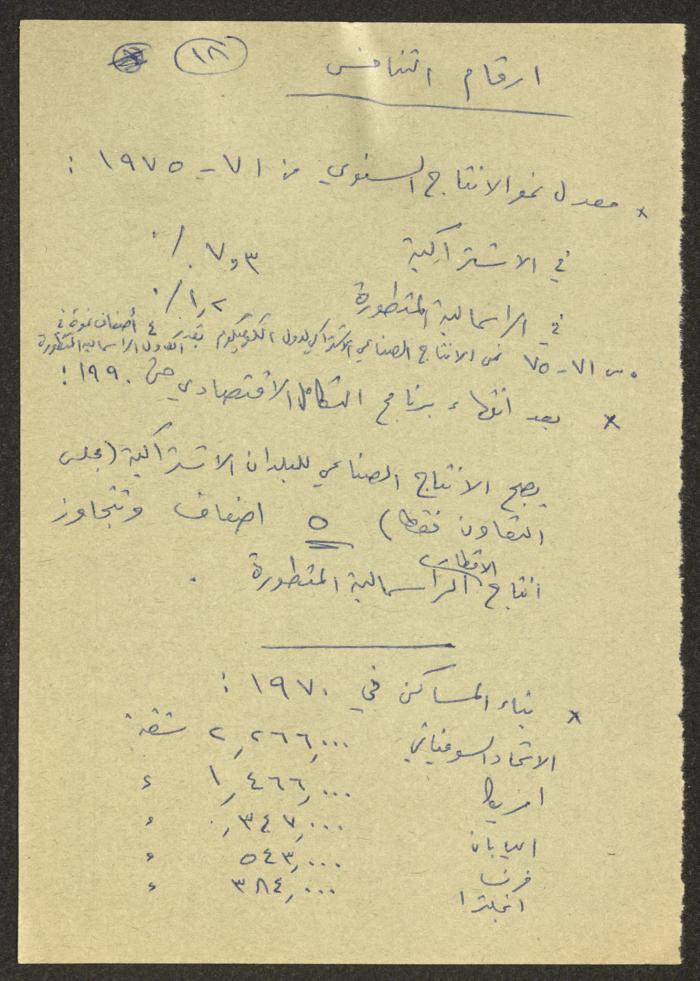 ١٨
ارقام التنافس
× معدل نمو الانتاج السنوي من ٧١ - ١٩٧٥ :
في الاشتراكية ٧,٣ ٪
في الراسمالية المتطورة ١,٢ ٪
٧١ - ٧٥ نمى الانتاج الصناعي الاشتراكي لدول الكوميكون بقدر ٤ أضعاف نموه في
الدول الراسمالية المتطورة
× بعد انتهاء برنامج التكامل الاقتصادي حتى ١٩٩٠ :
يصبح الانتاج الصناعي للبلدان الاشتراكية (مجلس
التعاون فقط) ٥ اضعاف وتتجاوز
الاقطار
انتاج الراسمالية المتطورة .
× بناء المساكن في ١٩٧٠ :
الاتحاد السوفياتي ٢,٢٦٦,٠٠٠ شقة
امريكا ١,٤٦٦,٠٠٠ ء
اليابان ٣٤٧,٠٠٠ ء
فرنسا ٥٤٣,٠٠٠ ء
انجلترا ٣٨٤,٠٠٠ ء